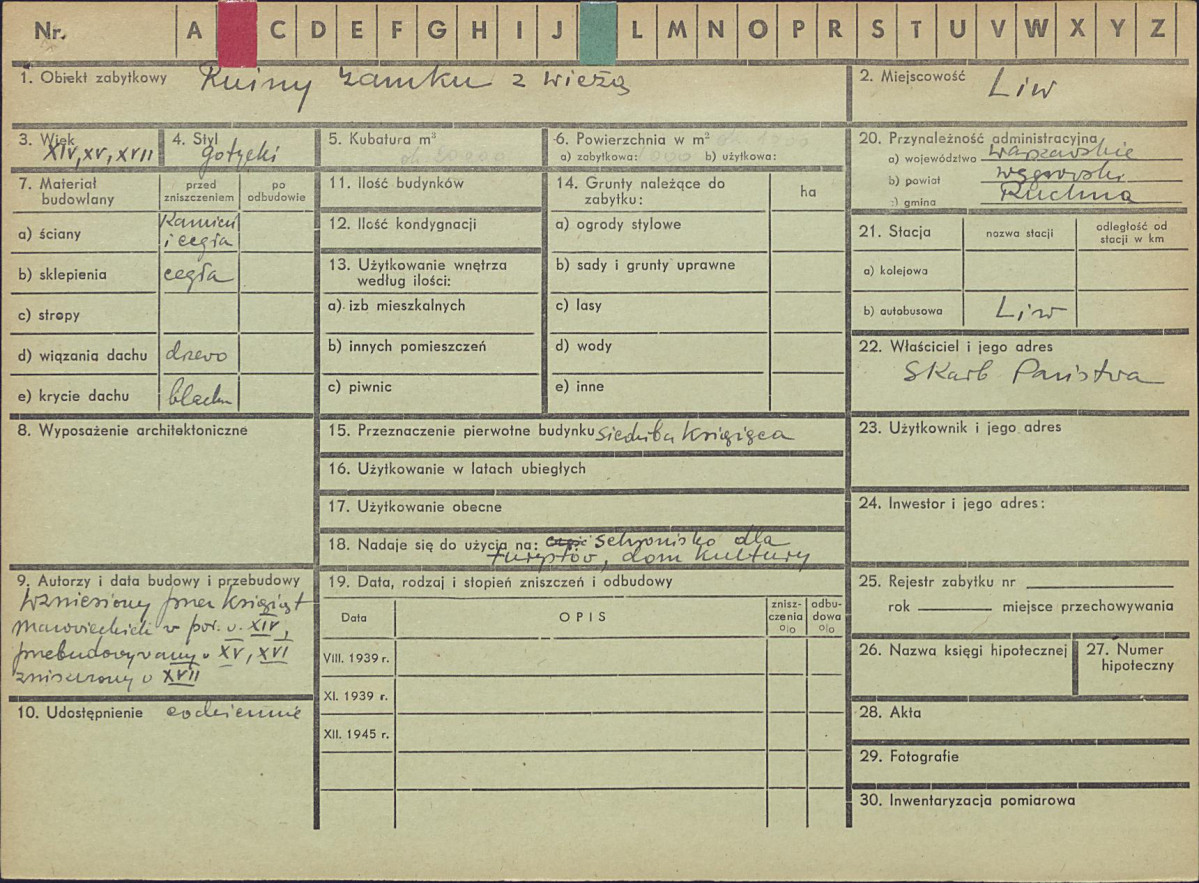 Nr.
A C D E F G H I J L M N O P R S T U V W X Y Z
1. Obiekt zabytkowy Ruiny zamku z wieżą
2. Miejscowość Liw
3. Wiek XIV, XV, XVII
4. Styl gotycki
5. Kubatura m³
6. Powierzchnia w m²
a) zabytkowa: b) użytkowa:
20. Przynależność administracyjna
a) województwo warszawskie
b) powiat węgrowski
c) gmina Ruchna
7. Materiał budowlany
przed zniszczeniem
po odbudowie
a) ściany Kamień
i cegła
b) sklepienia cegła
c) stropy
d) wiązania dachu drzewo
e) krycie dachu blacha
11. Ilość budynków
12. Ilość kondygnacji
13. Użytkowanie wnętrza
według ilości:
a) izb mieszkalnych
b) innych pomieszczeń
c) piwnic
14. Grunty należące do
zabytku:
ha
a) ogrody stylowe
b) sady i grunty uprawne
c) lasy
d) wody
e) inne
21. Stacja
nazwa stacji
odległość od
stacji w km
a) kolejowa
b) autobusowa Liw
22. Właściciel i jego adres
Skarb Państwa
8. Wyposażenie architektoniczne
15. Przeznaczenie pierwotne budynku siedziba książęca
16. Użytkowanie w latach ubiegłych
17. Użytkowanie obecne
18. Nadaje się do użycia na: schronisko dla
turystów, dom kultury
23. Użytkownik i jego adres
24. Inwestor i jego adres:
9. Autorzy i data budowy i przebudowy
Wzniesiony przez Książąt
mazowieckich w poł. w. XIV,
przebudowywany w XV, XVI
zniszczony w XVII
10. Udostępnienie codziennie
19. Data, rodzaj i stopień zniszczeń i odbudowy
Data
OPIS
znisz-
czenia
%
odbu-
dowa
%
VIII. 1939 r.
XI. 1939 r.
XII. 1945 r.
25. Rejestr zabytku nr
rok miejsce przechowywania
26. Nazwa księgi hipotecznej
27. Numer
hipoteczny
28. Akta
29. Fotografie
30. Inwentaryzacja pomiarowa